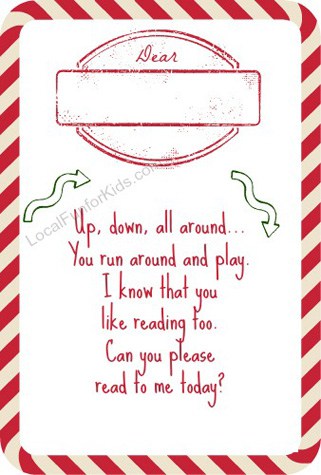 Dear
LocalFunforKids.com
Up, down, all around...
You run around and play.
I know that you
like reading too.
Can you please
read to me today?